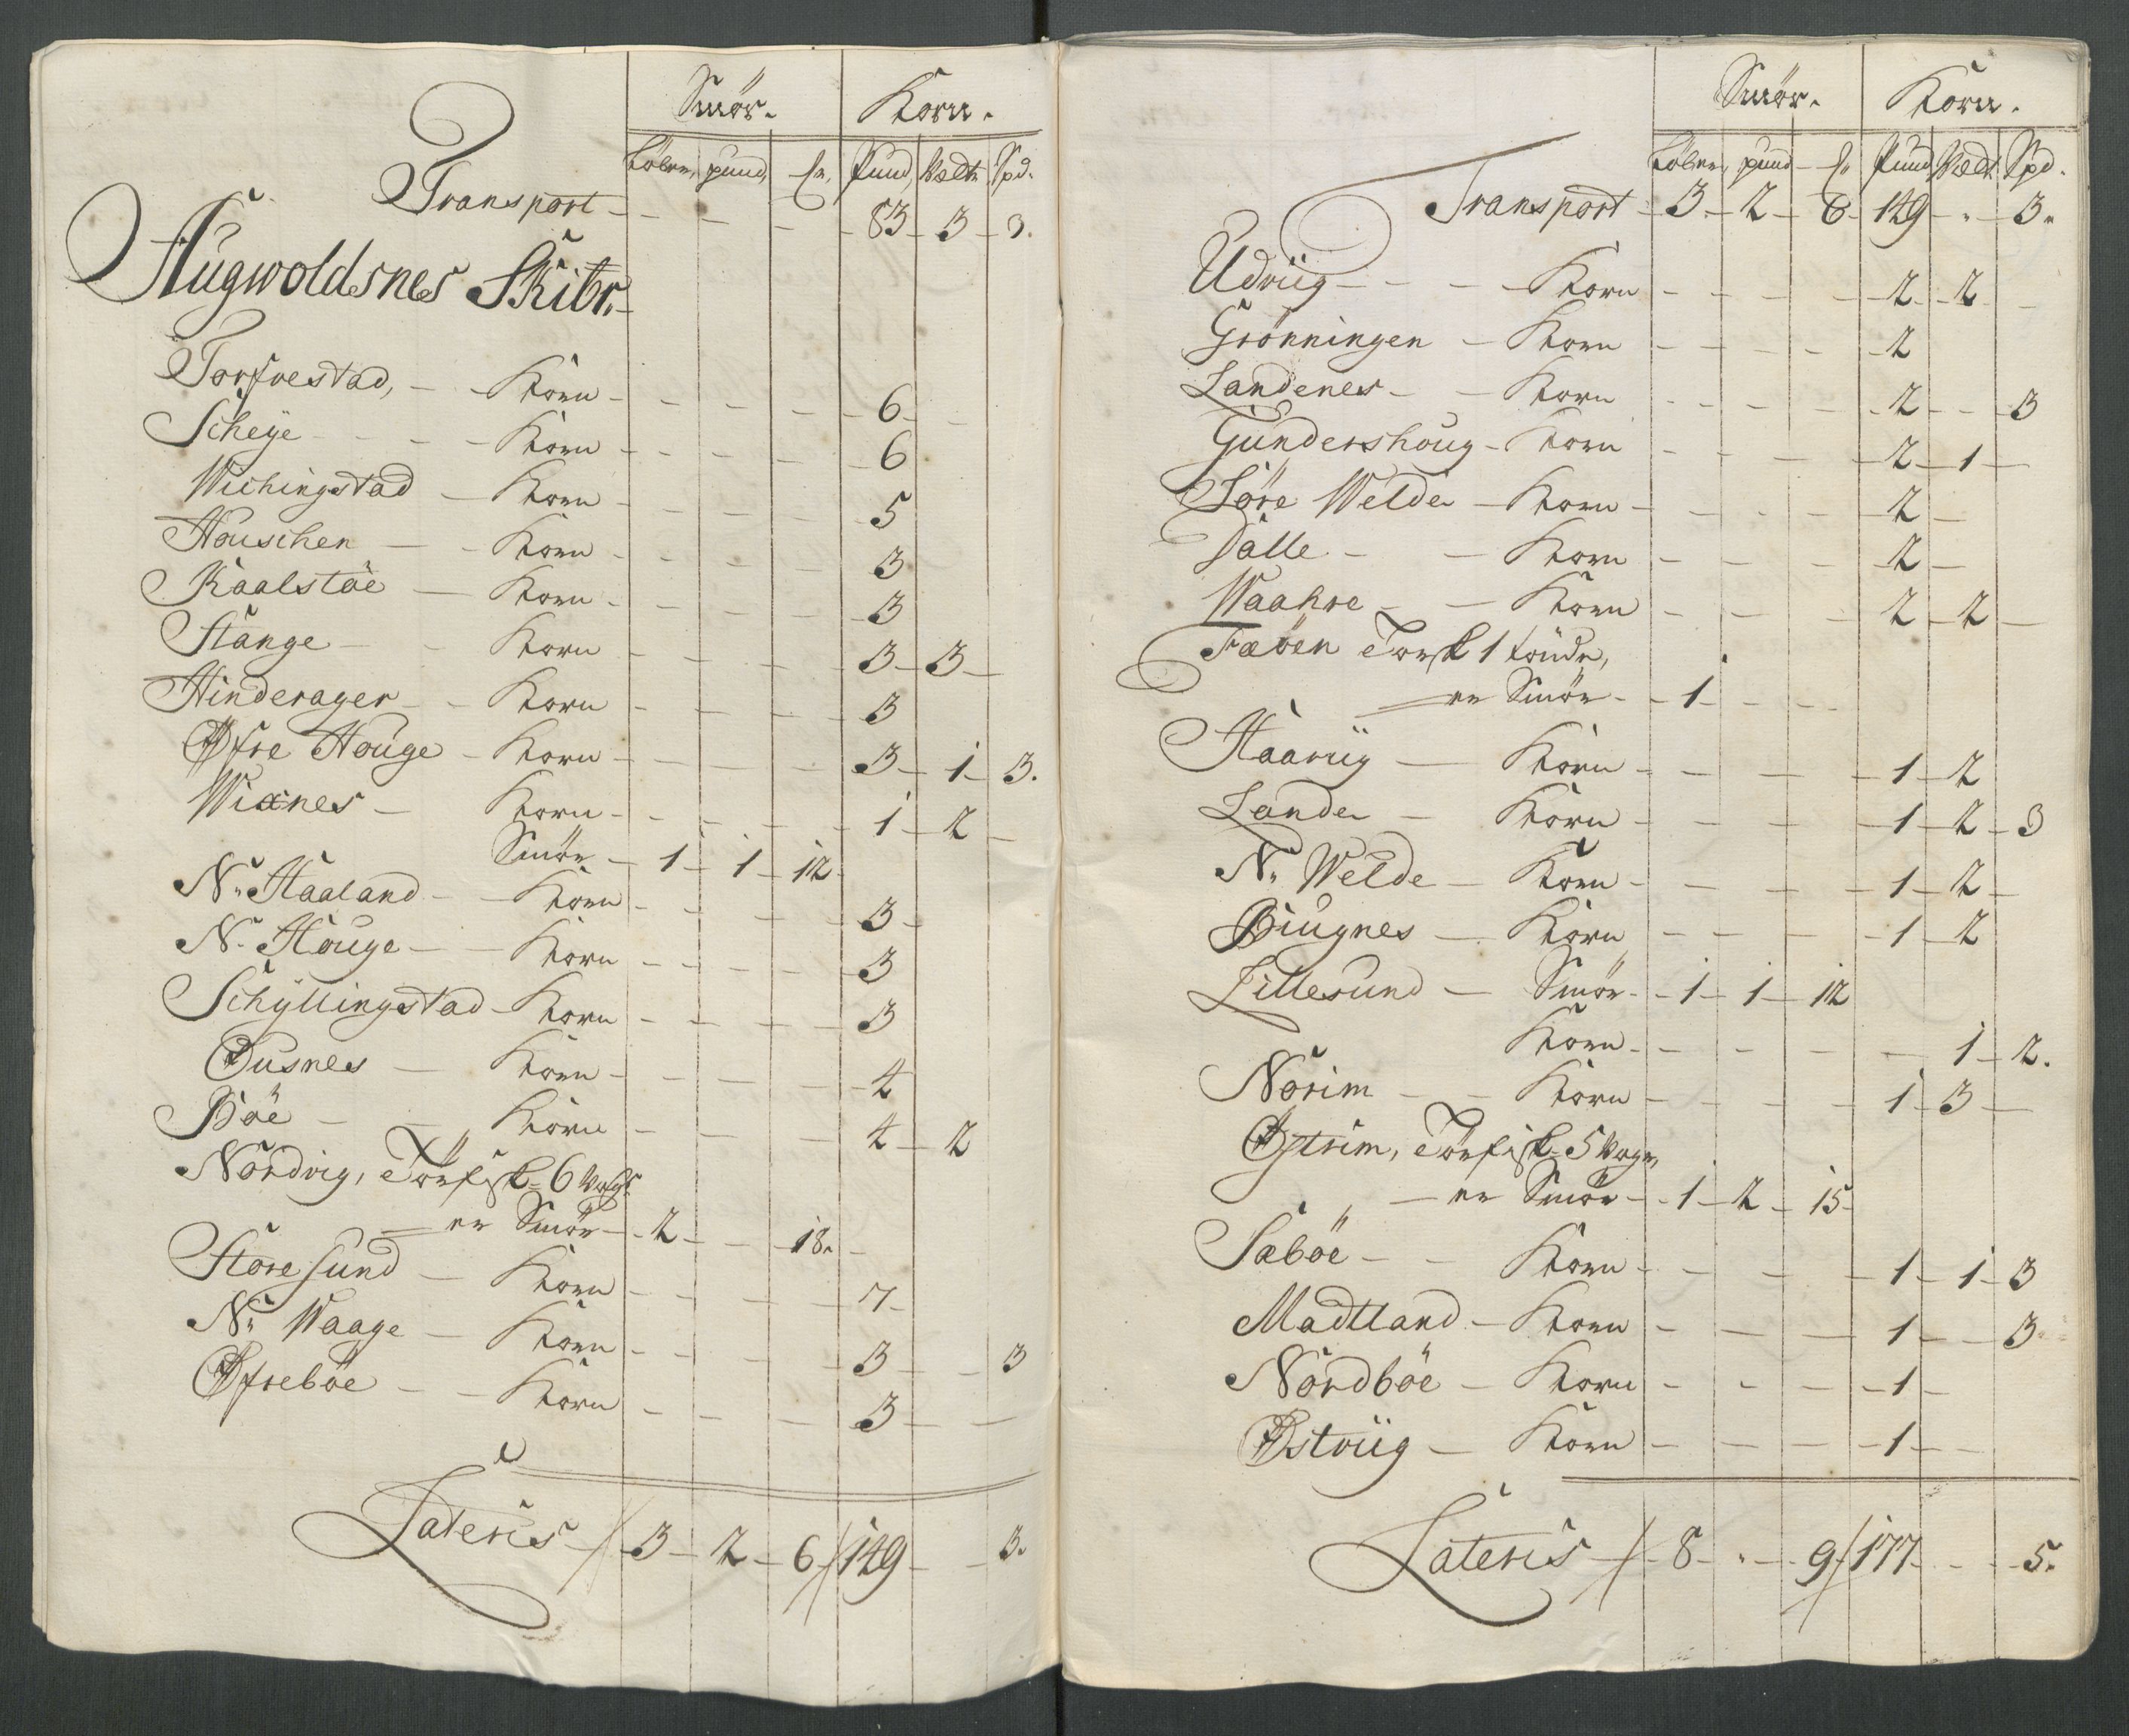 Smör. Korn.
Löber, pund, Pund, Vedtr Spd.
Transport - - - 83 - 3 - 3.
Augwoldsnes Skibr.
Torfvestad, - Korn - - - - 6 -
Scheye - - - Korn - - - - 6
Wichingstad - Korn - - - - 5
Houschen - - Korn - - - - 3
Kaalstöe - Korn - - - - 3
Stange - - Korn - - - - 3 - 3 -
Hinderager - - Korn - - - - 3
Öfre Houge - Korn - - - - 3 - 1 - 3.
Wixnes - Korn - - - - 1 - 2 -
Smör - 1 - 1 - 12
N. Haaland - - Korn - - - - 3 -
N. Houge - - Korn - - - - 3
Schÿllingstad - Korn - - - - 3
Ousnes - Korn - - - - 4
Böe - - Korn - - - 4 - 2
Nordvig, Törfisk - 6 Wogr
er Smör - 2 - - 18. -
Store Sund - Korn - - - - 7 -
Nr Waage - Korn - - - - 3 - - 3
Öfreböe - - Korn - - - 3 - -
Lateris - 3 - 2 - 6 149 - - 3.
Smör. Korn.
Löber, pund - Pund Vedt. Spd.
Transport - 3 - 2 - 6 - 149 - " - 3.
Udviig - - - Korn - - - - 2 - 2 -
Grönningen - Korn - - - - 2
Sandenes - - Korn - - - - 2 - - 3
Gundershoug - Korn - - - 2 - 1 -
Söre Welde - Korn - - - - 2 -
Dalle - - Korn - - - 2 -
Waahre - - Korn - - - 2 - 2 -
Fæöen Torsk 1 tönde,
er Smör - - 1 - - -
Haaviig - Korn - - - - 1 - 2
Sande - Korn - - - - 1 - 2 - 3
N. Welde - Korn - - - - 1 - 2 -
Biugnes - Korn - - - - 1 - 2
Lillesund - Smör - - 1 - 1 - 12
Korn - - - - - 1 - 2.
Norim - - Korn - - - - 1 - 3 -
Östrim, Törfisk - 5 Wogr,
er Smör - - 1 - 2 - 15 -
Sæböe - - Korn - - - - 1 - 1 - 3
Madtland - Korn - - - 1 - - 3
Nordböe - Korn - - - - 1 -
Östviig - Korn - - - - 1 - -
Lateris - 8 - " - 9 177 - - - 5.